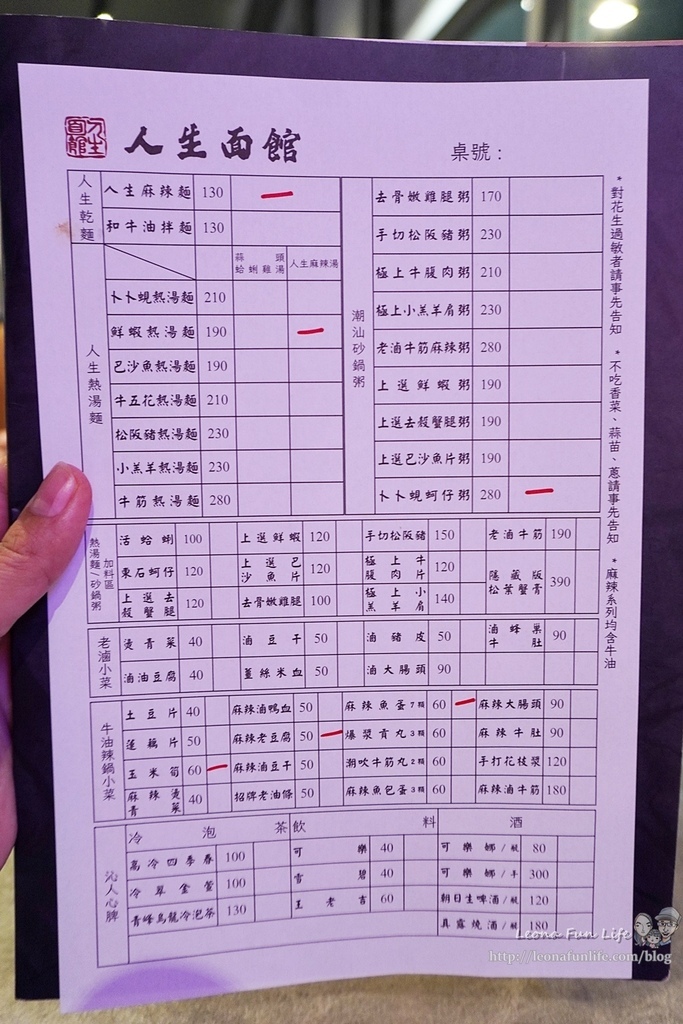 人生面館
人生面館
桌號：
人生乾麵
人生麻辣麵 130
和牛油拌麵 130
人生熱湯麵
蒜頭蛤蜊雞湯 人生麻辣湯
卜卜蜆熱湯麵 210
鮮蝦熱湯麵 190
巴沙魚熱湯麵 190
牛五花熱湯麵 210
松阪豬熱湯麵 230
小羔羊熱湯麵 230
牛筋熱湯麵 280
潮汕砂鍋粥
去骨嫩雞腿粥 170
手切松阪豬粥 230
極上牛腹肉粥 210
極上小羔羊肩粥 230
老滷牛筋麻辣粥 280
上選鮮蝦粥 190
上選去殼蟹腿粥 190
上選巴沙魚片粥 190
卜卜蜆蚵仔粥 280
*對花生過敏者請事先告知 *不吃香菜、蒜苗、蔥請事先告知 *麻辣系列均含牛油
熱湯麵/砂鍋粥 加料區
活蛤蜊 100 上選鮮蝦 120 手切松阪豬 150 老滷牛筋 190
東石蚵仔 120 上選巴沙魚片 120 極上牛腹肉片 120 隱藏版松葉蟹膏 390
上選去殼蟹腿 120 去骨嫩雞腿 100 極上小羔羊肩 140
老滷小菜
燙青菜 40 滷豆干 50 滷豬皮 50 滷蜂巢牛肚 90
滷油豆腐 40 薑絲米血 50 滷大腸頭 90
牛油辣鍋小菜
土豆片 40 麻辣滷鴨血 50 麻辣魚蛋7顆 60 麻辣大腸頭 90
蓮藕片 50 麻辣老豆腐 50 爆漿貢丸3顆 60 麻辣牛肚 90
玉米筍 60 麻辣滷豆干 50 潮吹牛筋丸2顆 60 手打花枝漿 120
麻辣燙青菜 40 招牌老油條 50 麻辣魚包蛋3顆 60 麻辣滷牛筋 180
沁人心脾
冷泡茶 飲料 酒
高冷四季春 100 可樂 40 可樂娜/瓶 80
冷翠金萱 100 雪碧 40 可樂娜/手 300
青峰烏龍冷泡茶 130 王老吉 60 朝日生啤酒/瓶 120
真露燒酒/瓶 180
Leona Fun Life
http://leonafunlife.com/blog